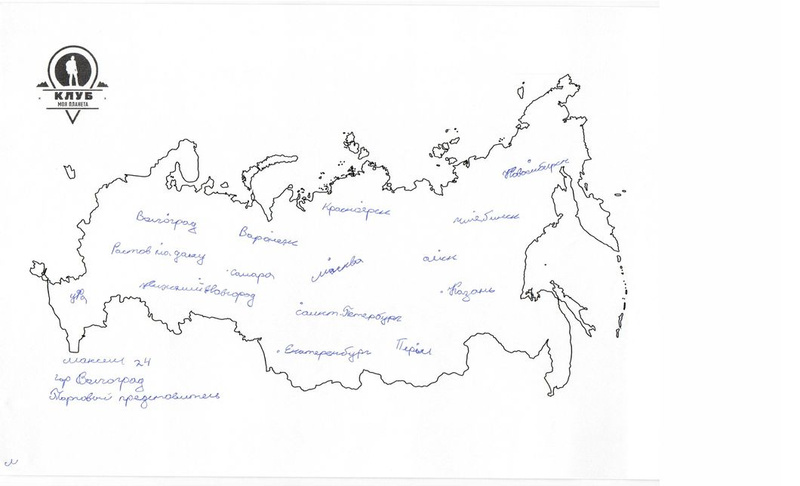 КЛУБ
МОЯ ПЛАНЕТА
Новосибирск
Красноярск
Волгоград
Челебинск
Варонеж
Ростов на дану
москва
омск
самара
Нижний Новгород
Казань
уфа
санкт-Петербург
Екатеренбург
Пермь
максим 24
гор Волгоград
Тарговый представитель